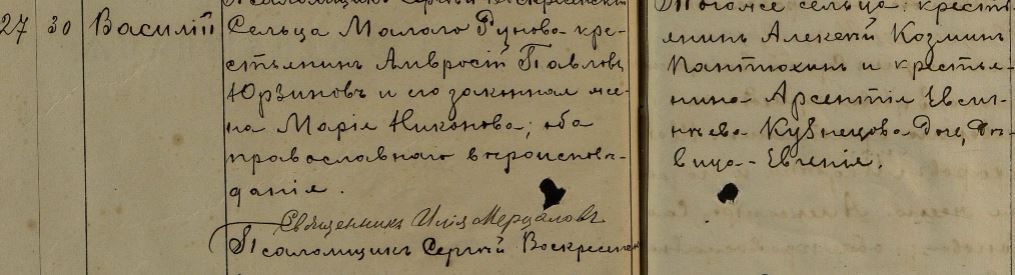 Псаломщикъ Сергій Воскресенскій
27 30 Василій
Сельца Малаго Рунова кре-
стьянинъ Амвросій Павловъ
Юрзиновъ и его законная же-
на Марія Никонова; оба
православнаго вѣроисповѣ-
данія.
Священникъ Илія Мерцаловъ
Псаломщикъ Сергій Воскресенск
Тогоже сельца: кресть-
янинъ Алексѣй Козминъ
Пантюхинъ и крестья-
нина Арсентія Евси-
нѣева Кузнецова дочь, дѣ-
вица - Евгенія.